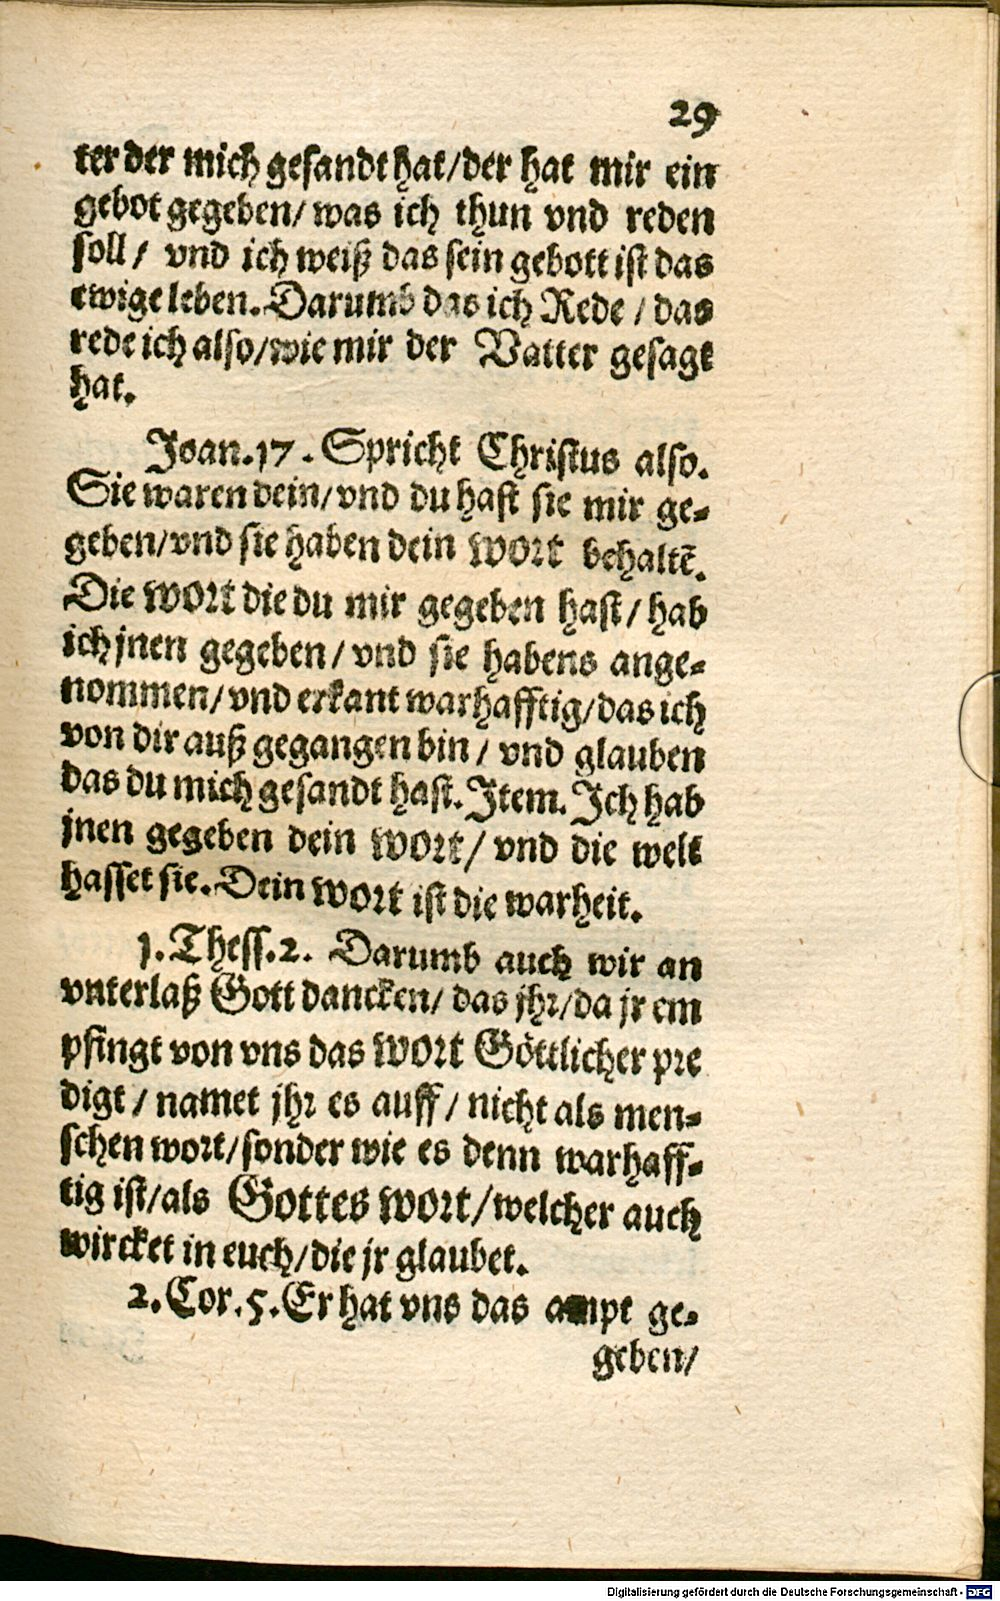 29
ter der mich gesandt hat/der hat mir ein
gebot gegeben/ was ich thun vnd reden
soll/ vnd ich weiß das sein gebott ist das
ewige leben. Darumb das ich Rede / das
rede ich also/wie mir der Vatter gesagt
hat.
Joan.17. Spricht Christus also.
Sie waren dein/vnd du hast sie mir ge-
geben/vnd sie haben dein WORT behaltē.
Die WORT die du mir gegeben hast/ hab
ich jnen gegeben/ vnd sie habens ange-
nommen/vnd erkant warhafftig/das ich
von dir auß gegangen bin / vnd glauben
das du mich gesandt hast. Item. Ich hab
jnen gegeben dein WORT/ vnd die welt
hasset sie. Dein WORT ist die warheit.
1. Thess. 2. Darumb auch wir an
vnterlaß Gott dancken/ das jhr/da jr em
pfingt von vns das WORT Göttlicher pre
digt / namet jhr es auff/ nicht als men-
schen wort/sonder wie es denn warhaff-
tig ist/als Gottes WORT/welcher auch
wircket in euch/die jr glaubet.
2. Cor. 5. Er hat vns das ampt ge-
geben/
Digitalisierung gefördert durch die Deutsche Forschungsgemeinschaft - DFG